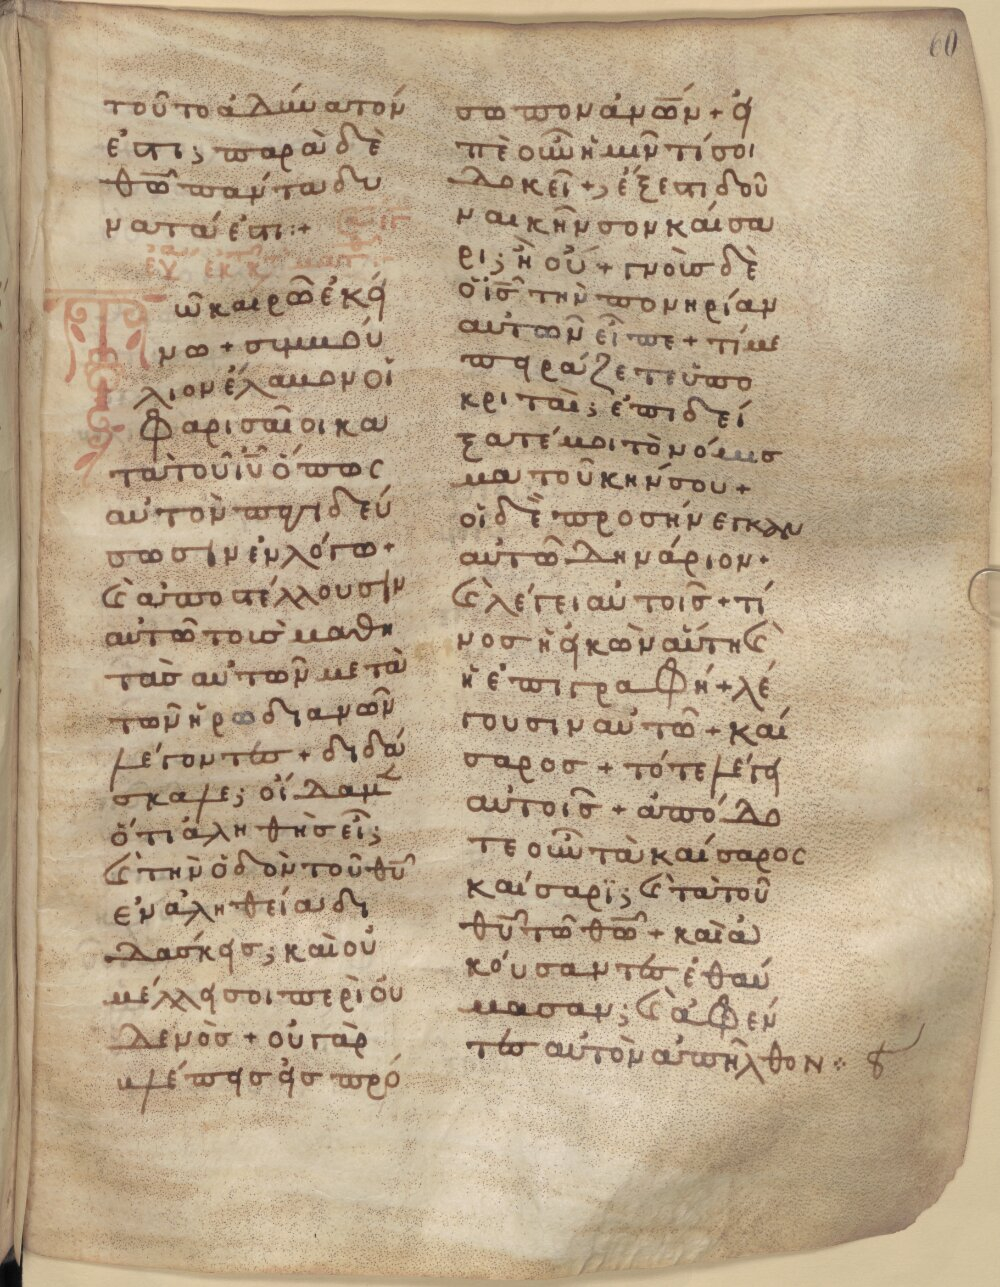 60
τοῦτο ἀδύνατόν
ἐστι; παρὰ δὲ
θῶ πάντα δυ
νατά ἐστι:+
εὐ ἐκ κ ματθ
ῶ καιρῶ ἐκεί
νω + συμβού
λιον ἔλαβον οἱ
Φαρισαῖοι κα
τὰ τοῦ ἰῦ ὅπως
αὐτὸν παγιδεύ
σωσιν ἐν λόγω +
καὶ ἀποστέλλουσιν
αὐτῶ τοὺσ μαθη
τὰσ αὐτῶν μετὰ
τῶν ἡρωδιανῶν
λέγοντεσ + διδά
σκαλε; οἴδαμεν
ὅτι ἀληθὴσ εἶ;
καὶ τὴν ὁδὸν τοῦ θῦ
ἐν ἀληθεία δι
δάσκεισ; καὶ οὐ
μέλλει σοι περὶ οὐ
δενὸσ + οὐ γὰρ
βλέπεισ εἰσ πρό
σωπον ἀνῶν + εἰ
πὲ οὖν ἡμῖν τί σοι
δοκεῖ +; ἔξεστι δοῦ
ναι κῆνσον καίσα
ρι; ἢ οὔ + γνοὺσ δὲ
ὁ ἰσ τὴν πονηρίαν
αὐτῶν εἶπε + τί με
πειράζετε ὑπο
κριταὶ; ἐπιδεί
ξατέ μοι τὸ νόμισ
μα τοῦ κήνσου +
οἱ δὲ προσήνεγκαν
αὐτῶ δηνάριον +
καὶ λέγει αὐτοῖσ + τί
νοσ ἡ εἰκὼν αὕτη καὶ
ἡ ἐπιγραΦή + λέ
γουσιν αὐτῶ + καί
σαροσ + τότε λέγει
αὐτοῖσ + ἀπόδο
τε οὖν τὰ καίσαρος
καίσαρϊ; καὶ τὰ τοῦ
θῦ τῶ θῶ + καὶ ἀ
κούσαντεσ ἐθαύ
μασαν; καὶ ἀΦέν
τεσ αὐτὸν ἀπῆλθον ⁘